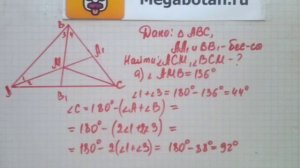 Megabotan.ru
Дано: △ABC,
AA₁ и BB₁ - бис-сы
Найти ∠ACM, ∠BCM - ?
а) ∠AMB = 136°
∠1+∠3 = 180° - 136° = 44°
∠C = 180° - (∠A + ∠B) =
= 180° - (2∠1 + 2∠3) =
= 180° - 2(∠1+∠3) = 180° - 88° = 92°
B
3 4
A₁
M
1
A
B₁
C